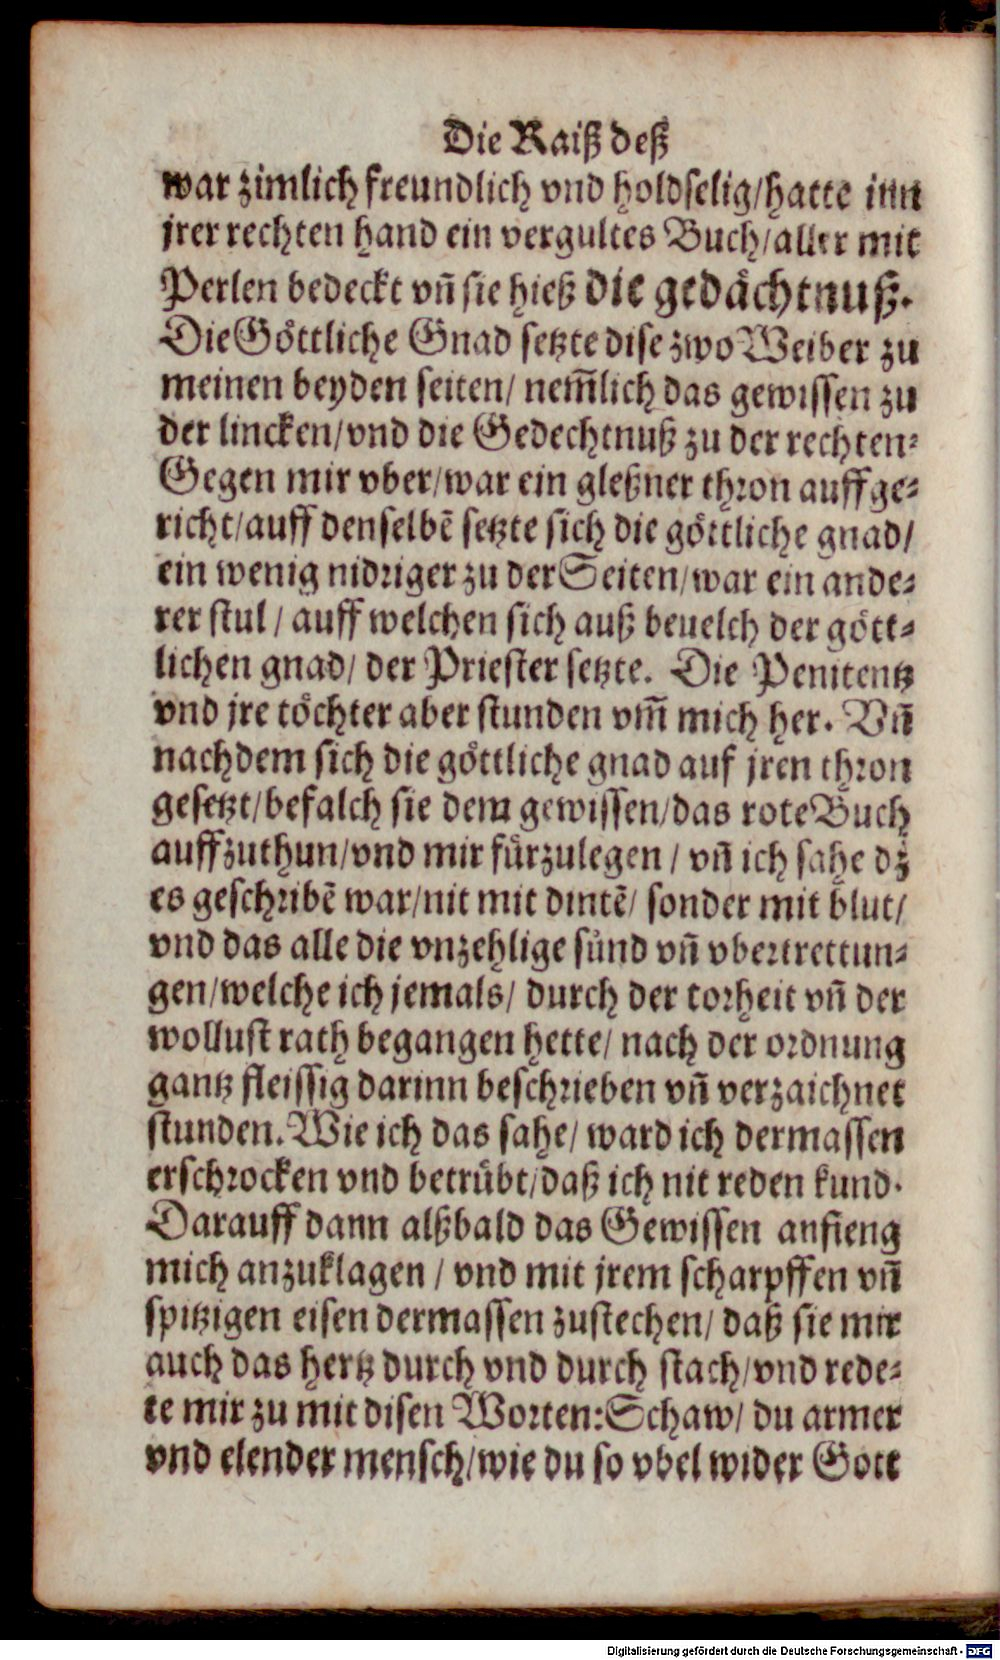 Die Raiß deß
war zimlich freundlich vnd holdselig/hatte inn
jrer rechten hand ein vergultes Buch/aller mit
Perlen bedeckt vn̄ sie hieß die gedächtnuß.
Die Göttliche Gnad setzte dise zwo Weiber zu
meinen beyden seiten/ nem̄lich das gewissen zu
der lincken/vnd die Gedechtnuß zu der rechten⸗
Gegen mir vber/war ein gleßner thron auffge⸗
richt/auff denselbē setzte sich die göttliche gnad/
ein wenig nidriger zu der Seiten/war ein ande⸗
rer stul / auff welchen sich auß beuelch der gött⸗
lichen gnad/ der Priester setzte. Die Penitentz
vnd jre töchter aber stunden vm̄ mich her. Vn̄
nachdem sich die göttliche gnad auf jren thron
gesetzt/befalch sie dem gewissen/das rote Buch
auffzuthun/vnd mir fürzulegen / vn̄ ich sahe dz
es geschribē war/nit mit dintē/ sonder mit blut/
vnd das alle die vnzehlige sünd vn̄ vbertrettun⸗
gen/welche ich jemals/ durch der torheit vn̄ der
wollust rath begangen hette/ nach der ordnung
gantz fleissig darinn beschrieben vn̄ verzaichnet
stunden. Wie ich das sahe/ ward ich dermassen
erschrocken vnd betrübt/daß ich nit reden kund.
Darauff dann alßbald das Gewissen anfieng
mich anzuklagen / vnd mit jrem scharpffen vn̄
spitzigen eisen dermassen zustechen/ daß sie mir
auch das hertz durch vnd durch stach/vnd rede⸗
te mir zu mit disen Worten: Schaw/ du armer
vnd elender mensch/wie du so vbel wider Gott
Digitalisierung gefördert durch die Deutsche Forschungsgemeinschaft - DFG